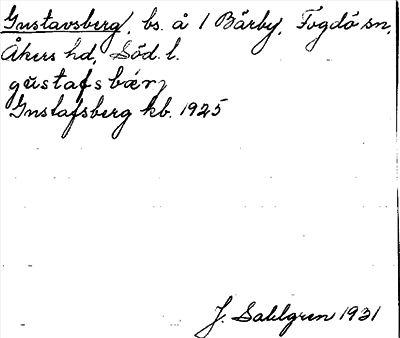 Gustavsberg, bs. å 1 Bärby, Fogdö sn,
Åkers hd, Söd. l.
gŭstafsbærj
Gustafsberg kb. 1925
J. Sahlgren 1931